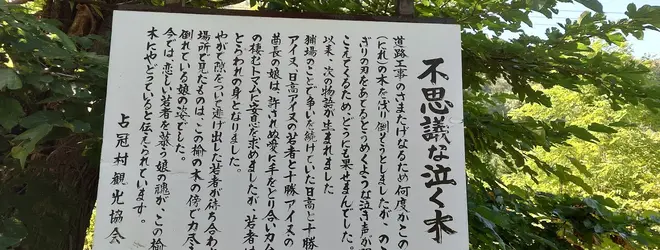 不思議な泣く木
道路工事のさまたげになるため何度かこの
(にれ)の木を浅り倒そうとしましたが、このこ
ぎりの刃をあてるとうめくような泣き声が
こえてくるため、どうにも果せませんでした。
以来、次の物語が生まれました
猟場のことで争いを続けていた日高と十勝
アイヌ、日高アイヌの若者と十勝アイヌの
酋長の娘は、許されぬ愛に手をとり合い力
の棲むトマムに安息を求めましたが、若者
とらわれの身となりました。
やがて隙をついて逃げ出た若者が待ち合わ
場所で見たものは、この楡の木の傍で力尽き
倒れている娘の姿でした。
今では、恋しい若者を慕う娘の魂が、この楡
木にやどっていると伝えられています。
占冠村観光協会